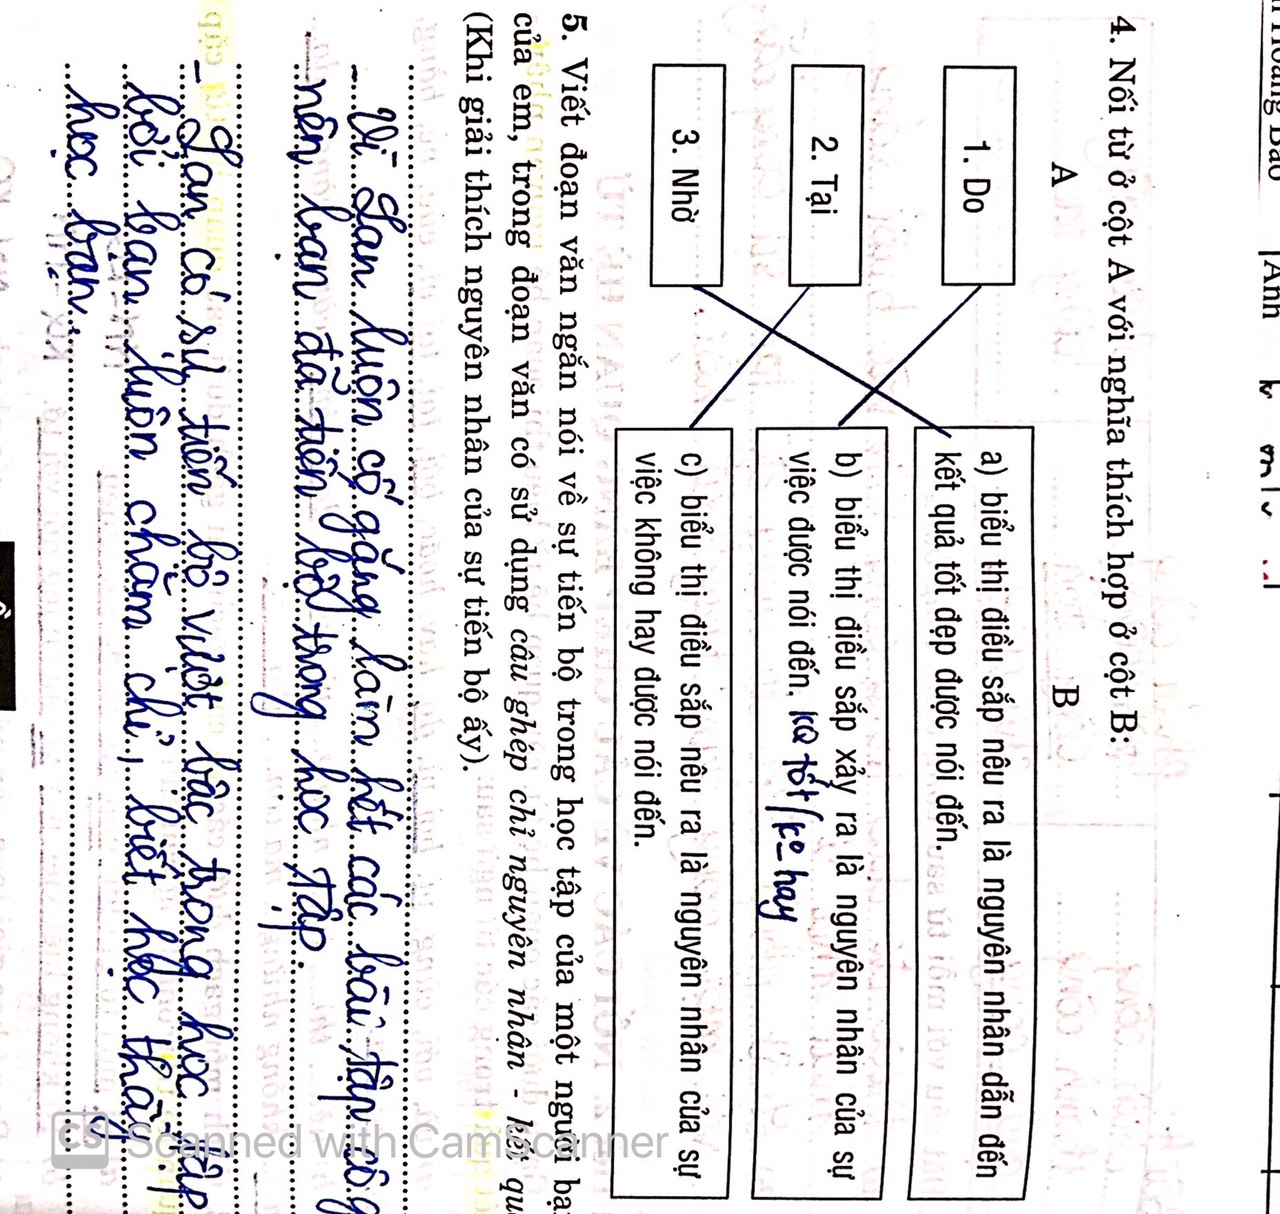 Anh
4. Nối từ ở cột A với nghĩa thích hợp ở cột B:
A B
1. Do
2. Tại
3. Nhờ
a) biểu thị điều sắp nêu ra là nguyên nhân dẫn đến
kết quả tốt đẹp được nói đến.
b) biểu thị điều sắp xảy ra là nguyên nhân của sự
việc được nói đến. KQ tốt/k° hay
c) biểu thị điều sắp nêu ra là nguyên nhân của sự
việc không hay được nói đến.
5. Viết đoạn văn ngắn nói về sự tiến bộ trong học tập của một người bạ
của em, trong đoạn văn có sử dụng câu ghép chỉ nguyên nhân - kết qu
(Khi giải thích nguyên nhân của sự tiến bộ ấy).
- Vì Lan luôn cố gắng làm hết các bài tập cô g
nên bạn đã tiến bộ trong học tập.
- Lan có sự tiến bộ vượt bậc trong học tập
bởi bạn luôn chăm chỉ, biết học thầy
học bạn.
CS Scanned with CamScanner